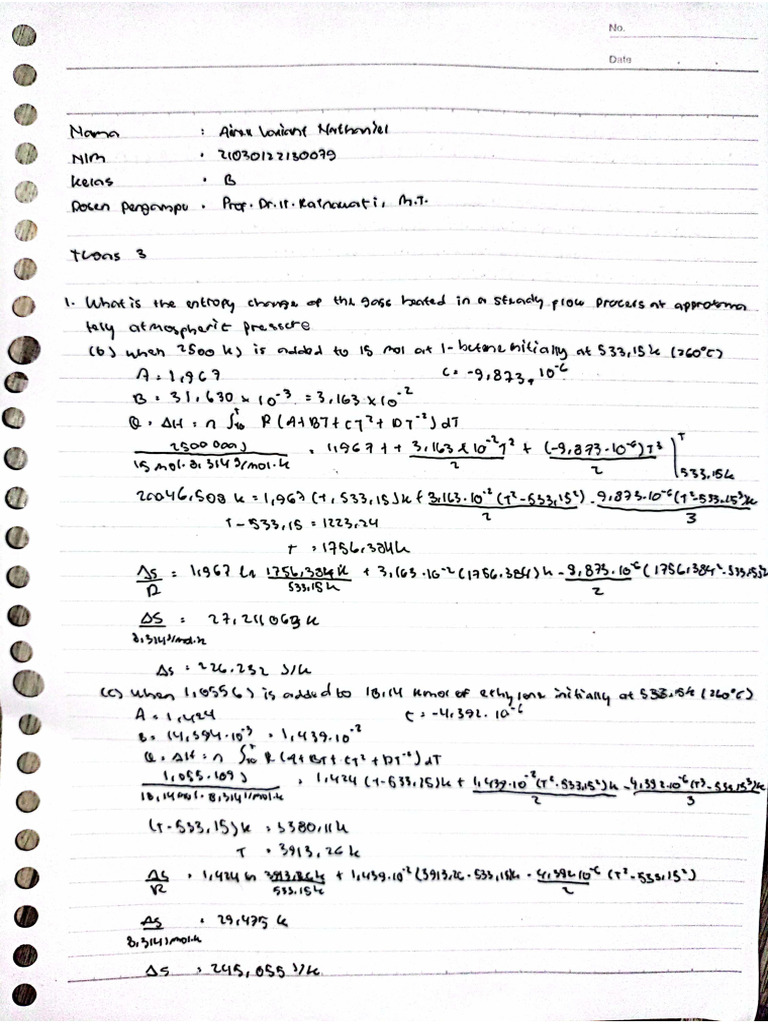 No.
Date
Nama :
NIM : 21030122130079
Kelas : B
Dosen Pengampu : Prof. Dr. Ir. Ratnawati, M.T.
Tugas 3
1. What is the entropy change of the gass heated in a steady flow process at approxima
tely atmospheric pressure
(b) when 2500 kJ is added to 15 mol at 1-butene initially at 533,15 k (260°C)
A = 1,967 C = -9,873 . 10⁻⁶
B = 31,630 × 10⁻³ = 3,163 × 10⁻²
Q = ΔH = n ∫ R (A + BT + CT² + DT⁻²) dT
2500 000 J / 15 mol . 8,314 J/mol.k = 1,967 T + 3,163 × 10⁻² T² / 2 + (-9,873 . 10⁻⁶) T³ / 2 | T 533,15k
20046,508 k = 1,967 (T, 533,15) k + 3,163 . 10⁻² (T² - 533,15²) / 2 - 9,873 . 10⁻⁶ (T³ - 533,15³) k / 3
T - 533,15 = 1223,24
T = 1756,384 k
ΔS / R = 1,967 ln 1756,384 k / 533,15 k + 3,163 . 10⁻² (1756,384) k - 9,873 . 10⁻⁶ (1756,384² - 533,15²) / 2
ΔS / 8,314 J/mol.k = 27,211063 k
ΔS = 226.232 J/k
(c) when 1,0556 J is added to 18,14 kmol of ethylene initially at 533,15 k (260°C)
A = 1,424 C = -4,392 . 10⁻⁶
B = 14,394 . 10⁻³ = 1,439 . 10⁻²
Q = ΔH = n ∫ R (A + BT + CT² + DT⁻²) dT
1,055 . 10⁹ J / 18,14 mol . 8,314 J/mol.k = 1,424 (T - 533,15) k + 1,439 . 10⁻² (T² - 533,15²) k / 2 - 4,392 . 10⁻⁶ (T³ - 533,15³) k / 3
(T - 533,15) k = 3380,11 k
T = 3913,26 k
ΔS / R = 1,424 ln 3913,26 k / 533.15 k + 1,439 . 10⁻² (3913,26 - 533,15) k - 4,392 . 10⁻⁶ / 2 (T² - 533,15²)
ΔS / 8,314 J/mol.k = 29,475 k
ΔS = 245,055 J/k